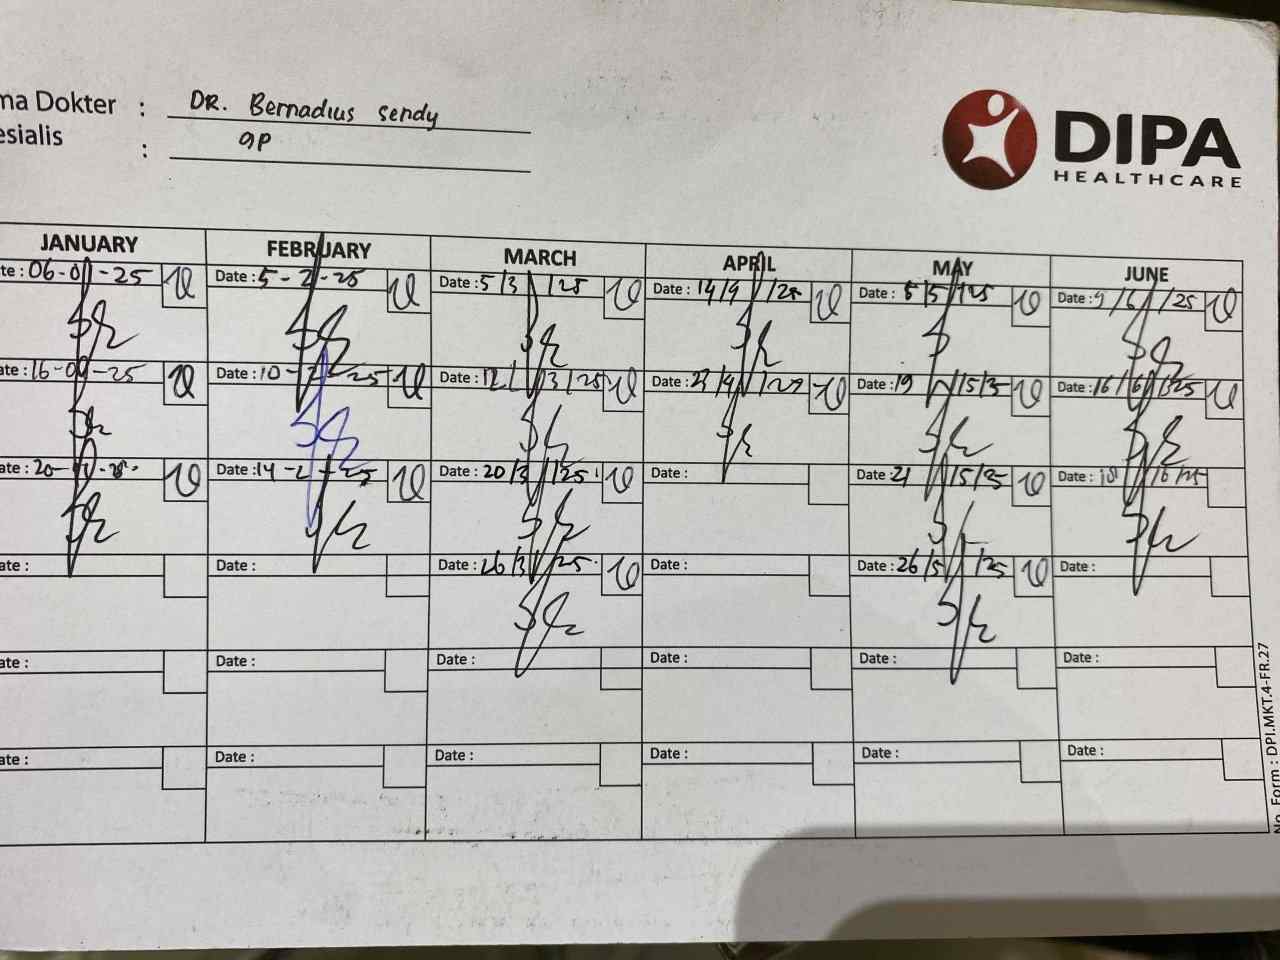 ma Dokter : DR. Bernadius sendy
esialis : GP
DIPA
HEALTHCARE
JANUARY FEBRUARY MARCH APRIL MAY JUNE
te : 06-01-25 Date : 5-2-25 Date : 5/3/25 Date : 14/4/25 Date : 5/5/25 Date : 9/6/25
ate : 16-01-25 Date : 10-2-25 Date : 12/3/25 Date : Date : 19/5/25 Date : 16/6/25
ate : 20- Date : 14-2-25 Date : 20/3/25 Date : Date : 21/5/25 Date :
ate : Date : Date : 26/3/25 Date : Date : 26/5/25 Date :
ate : Date : Date : Date : Date : Date :
ate : Date : Date : Date : Date : Date :
No. Form : DPI.MKT.4-FR.27